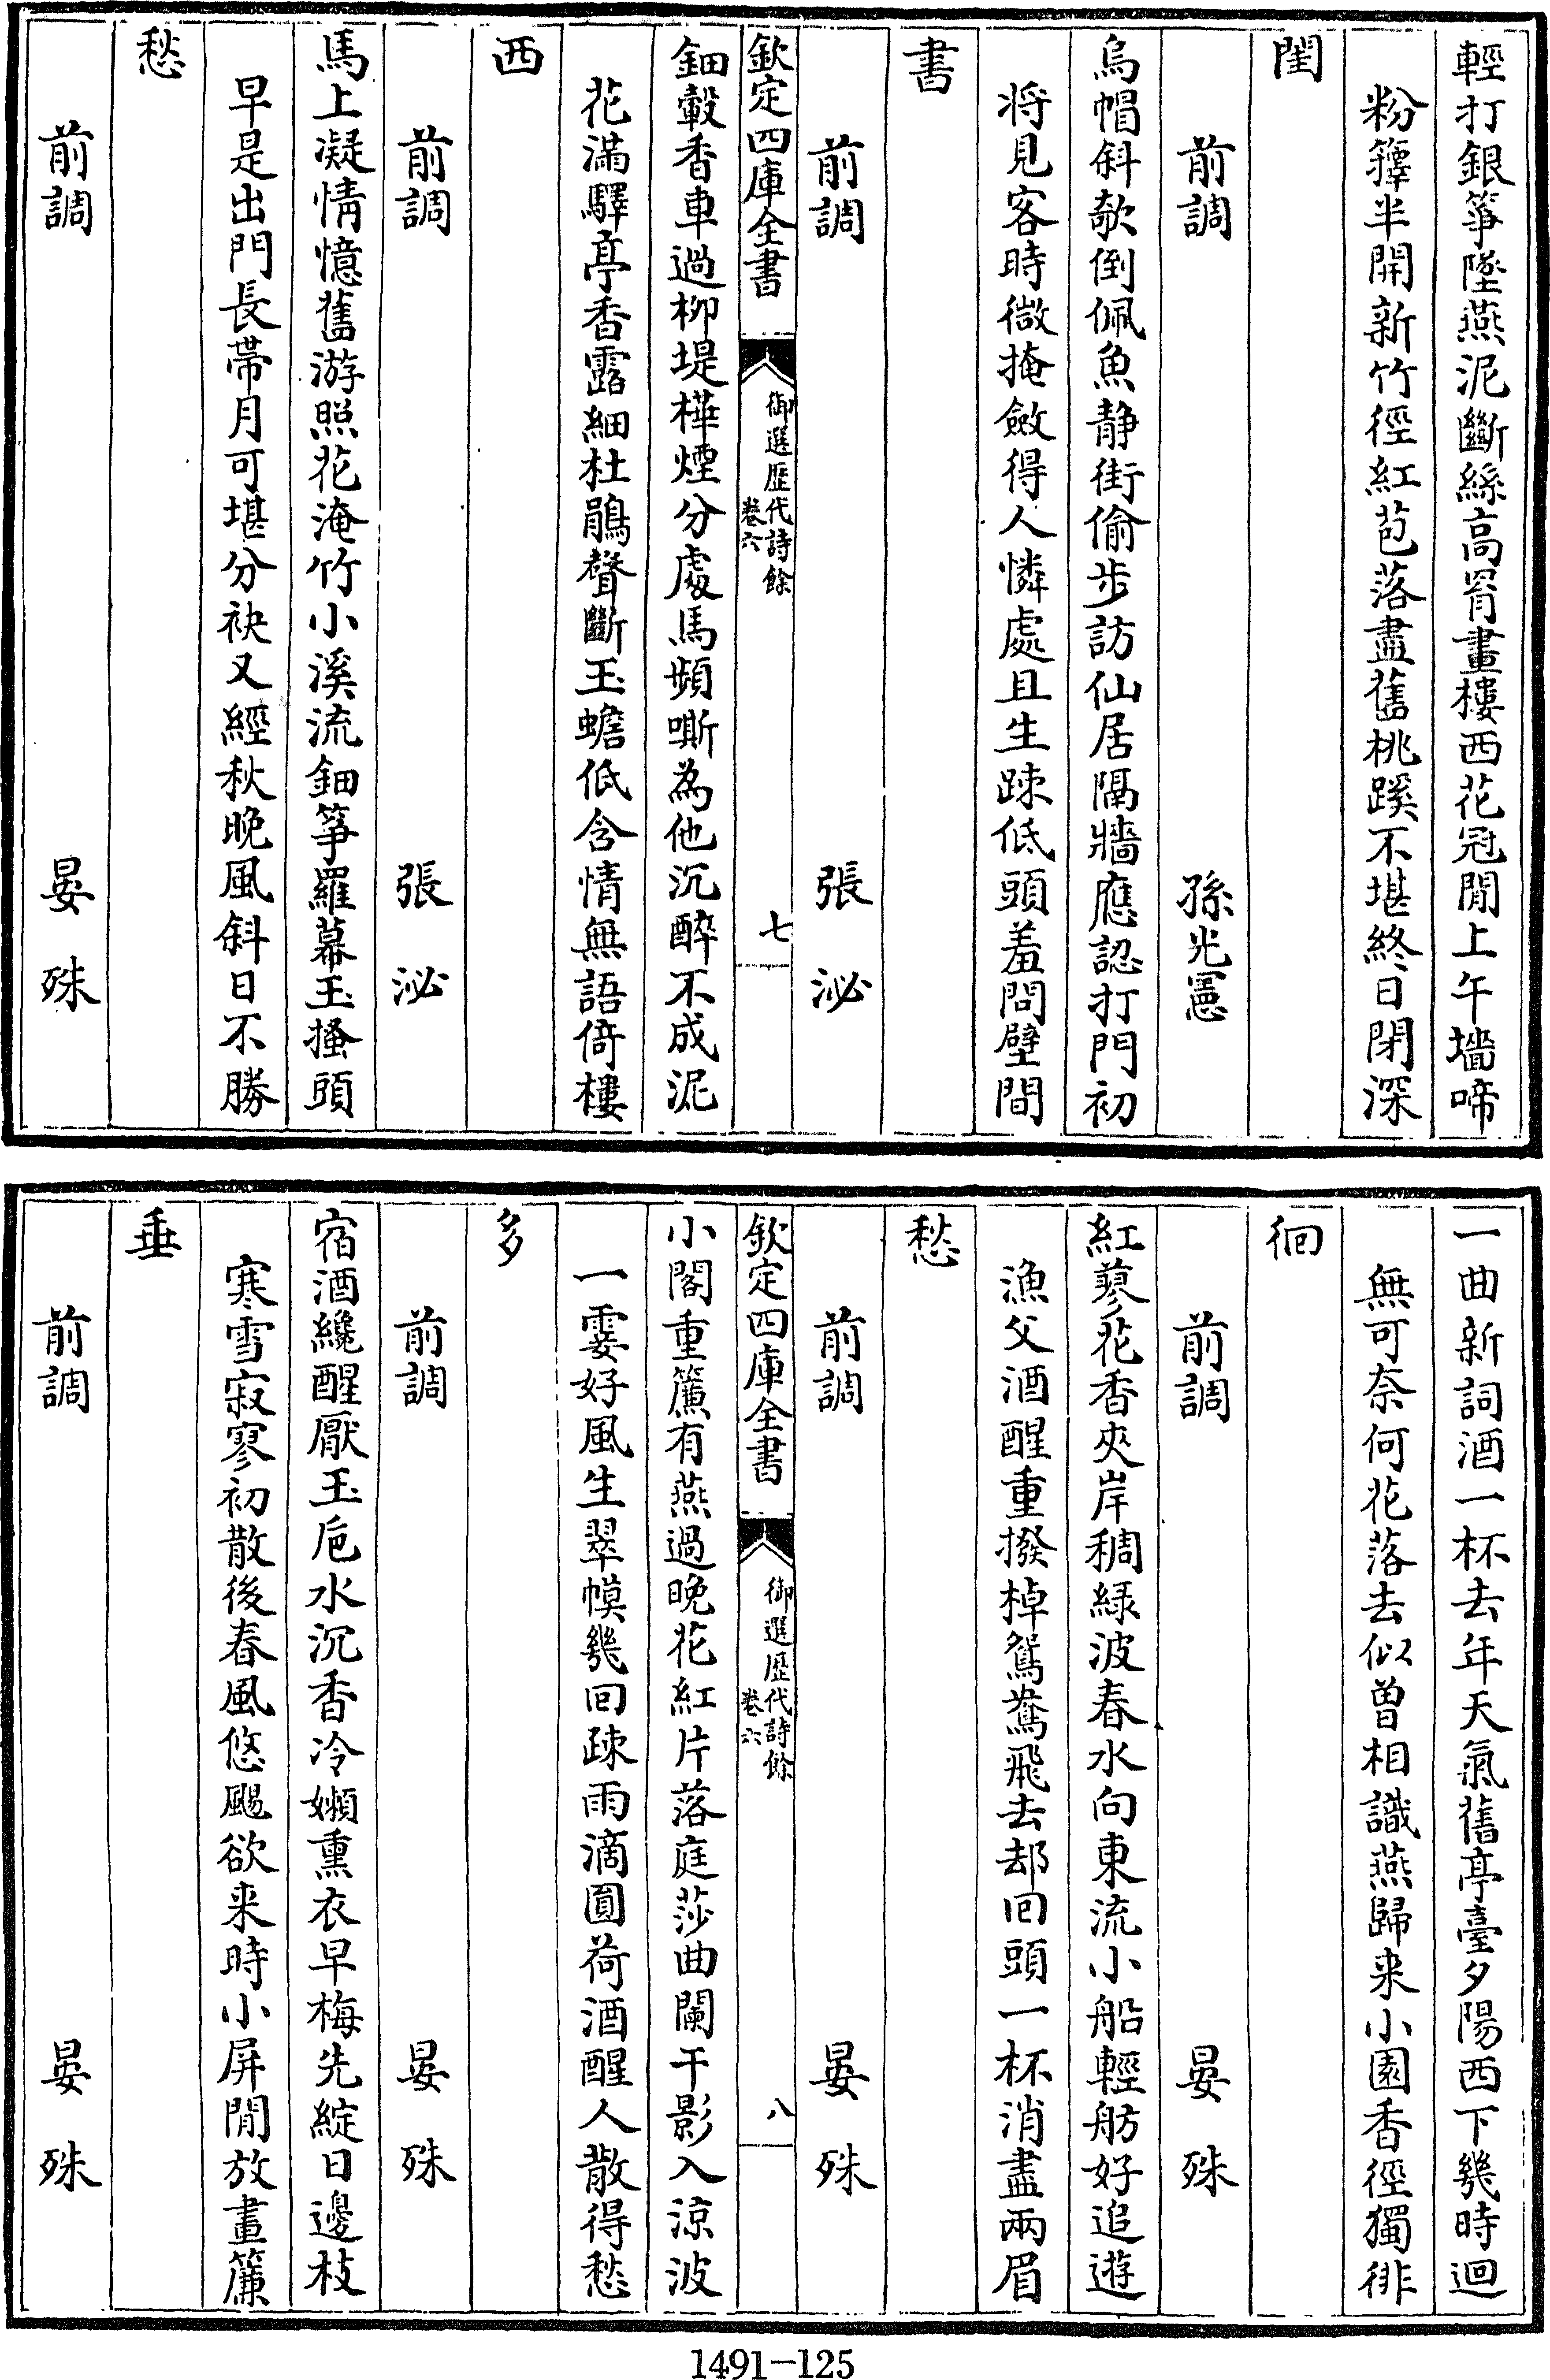 輕打銀箏墜燕泥斷絲高罥畫樓西花冠閒上午墻啼
粉籜半開新竹徑紅苞落盡舊桃蹊不堪終日閉深
閨
前調 孫光憲
烏帽斜欹倒佩魚静街偷步訪仙居隔牆應認打門初
將見客時微掩斂得人憐處且生疎低頭羞問壁間
書
前調 張泌
欽定四庫全書 御選歷代詩餘 卷六 七
鈿轂香車過柳堤樺煙分處馬頻嘶為他沉醉不成泥
花滿驛亭香露細杜鵑聲斷玉蟾低含情無語倚樓
西
前調 張泌
馬上凝情憶舊游照花淹竹小溪流鈿箏羅幕玉搔頭
早是出門長帶月可堪分袂又經秋晚風斜日不勝
愁
前調 晏殊
一曲新詞酒一杯去年天氣舊亭臺夕陽西下幾時迴
無可奈何花落去似曾相識燕歸来小園香徑獨徘
徊
前調 晏殊
紅蓼花香夾岸稠緑波春水向東流小船輕舫好追遊
漁父酒醒重撥棹鴛鴦飛去却回頭一杯消盡兩眉
愁
前調 晏殊
欽定四庫全書 御選歷代詩餘 卷六 八
小閣重簾有燕過晚花紅片落庭莎曲闌干影入涼波
一霎好風生翠幙幾回疎雨滴圓荷酒醒人散得愁
多
前調 晏殊
宿酒纔醒厭玉巵水沉香冷嬾熏衣早梅先綻日邊枝
寒雪寂寥初散後春風悠颺欲来時小屏閒放畫簾
垂
前調 晏殊
1491—125